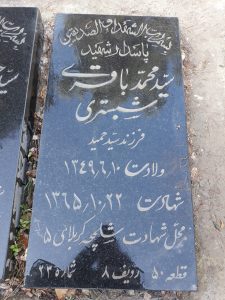 پاسدار شهید
سید محمد باقری
شبستری
فرزند سید حمید
ولادت ۱۳۴۹/۶/۱۰
شهادت ۱۳۶۵/۱۰/۲۲
محل شهادت شلمچه کربلای ۵
قطعه ۵۰ ردیف ۸ شماره ۲۳